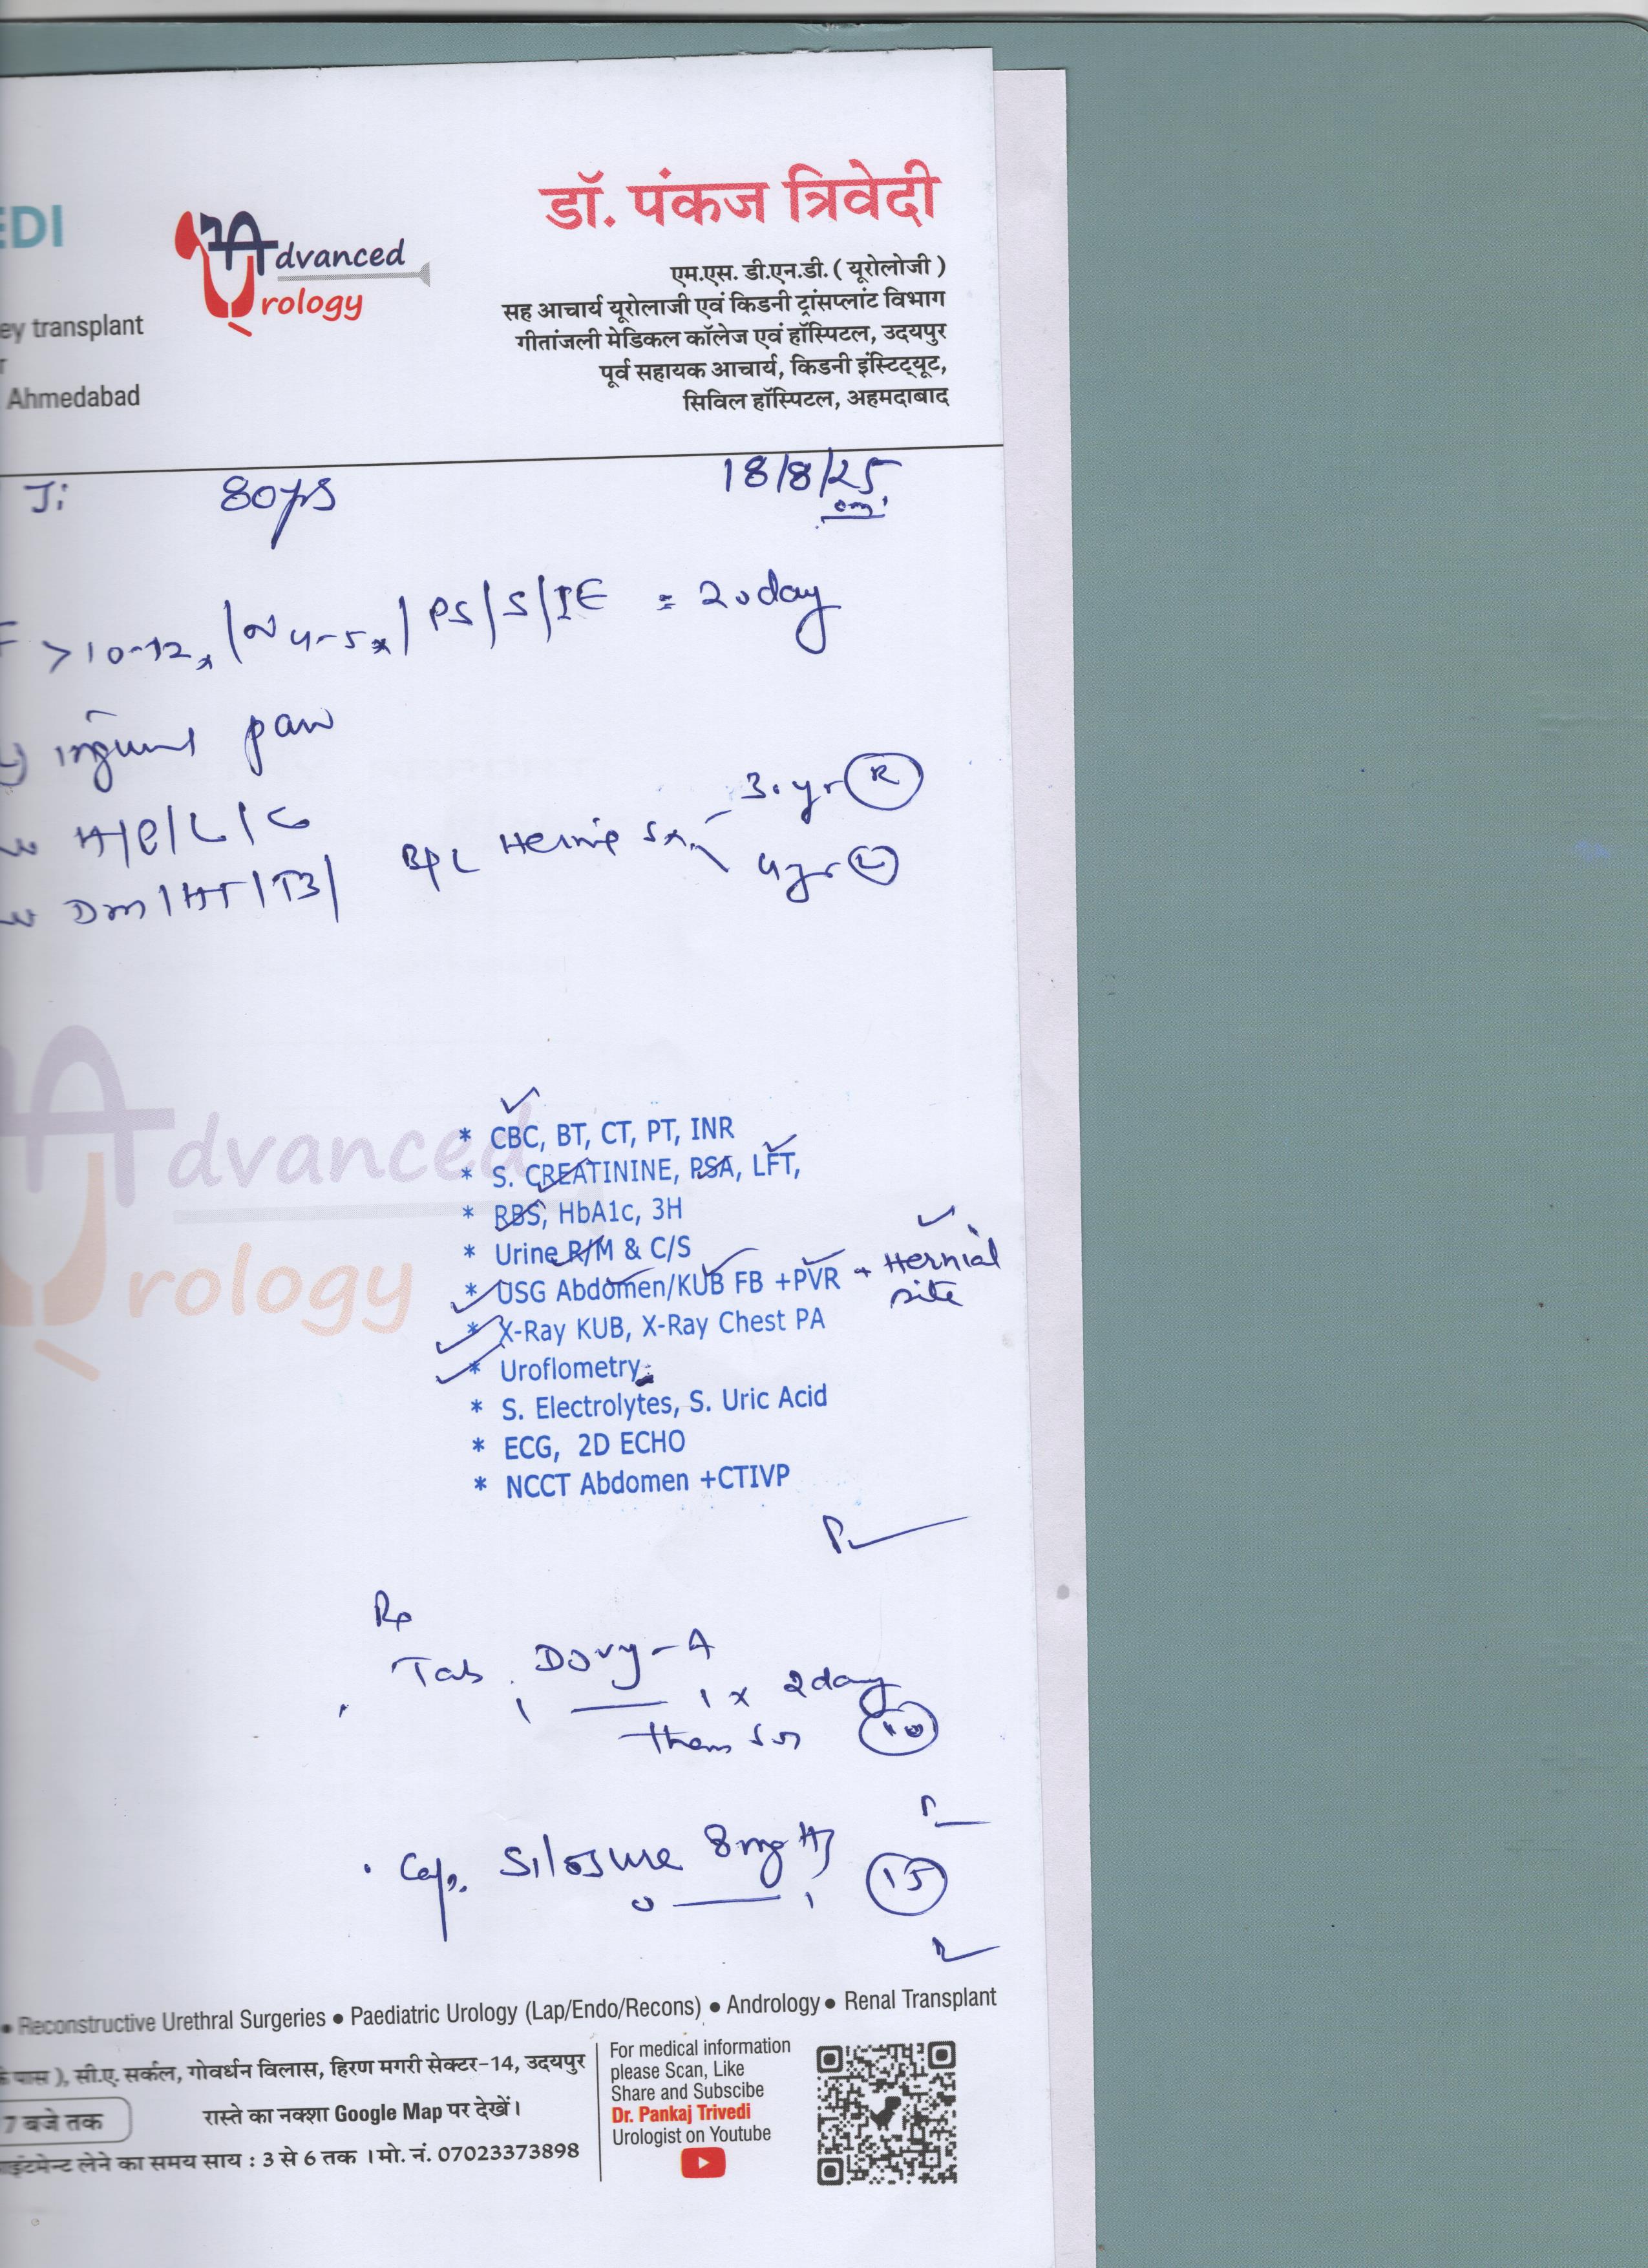 EDI
Advanced
Urology
डॉ. पंकज त्रिवेदी
एम.एस. डी.एन.डी. ( यूरोलोजी )
सह आचार्य यूरोलाजी एवं किडनी ट्रांसप्लांट विभाग
गीतांजली मेडिकल कॉलेज एवं हॉस्पिटल, उदयपुर
पूर्व सहायक आचार्य, किडनी इंस्टिट्यूट,
सिविल हॉस्पिटल, अहमदाबाद
ey transplant
r
Ahmedabad
Ji 80yrs 18/8/25
>10-12x / N 4-5x / PS/S/IE = 20day
inguinal pain
H/P/L/C
DM/HT/TB/ Bil Hernia Sx 3.yr R
4yr L
Advanced
Urology
* CBC, BT, CT, PT, INR
* S. CREATININE, PSA, LFT,
* RBS, HbA1c, 3H
* Urine R/M & C/S
* USG Abdomen/KUB FB +PVR + Hernial site
* X-Ray KUB, X-Ray Chest PA
* Uroflometry
* S. Electrolytes, S. Uric Acid
* ECG, 2D ECHO
* NCCT Abdomen +CTIVP
Rp
Tab. Dovy-A
1 — 1 x 2day
then SOS 10
Cap. Silosure 8mg HS
0 — 1 15
• Reconstructive Urethral Surgeries • Paediatric Urology (Lap/Endo/Recons) • Andrology • Renal Transplant
के पास ), सी.ए. सर्कल, गोवर्धन विलास, हिरण मगरी सेक्टर-14, उदयपुर
7 बजे तक
रास्ते का नक्शा Google Map पर देखें।
लेने का समय साय : 3 से 6 तक । मो. नं. 07023373898
For medical information
please Scan, Like
Share and Subscibe
Dr. Pankaj Trivedi
Urologist on Youtube